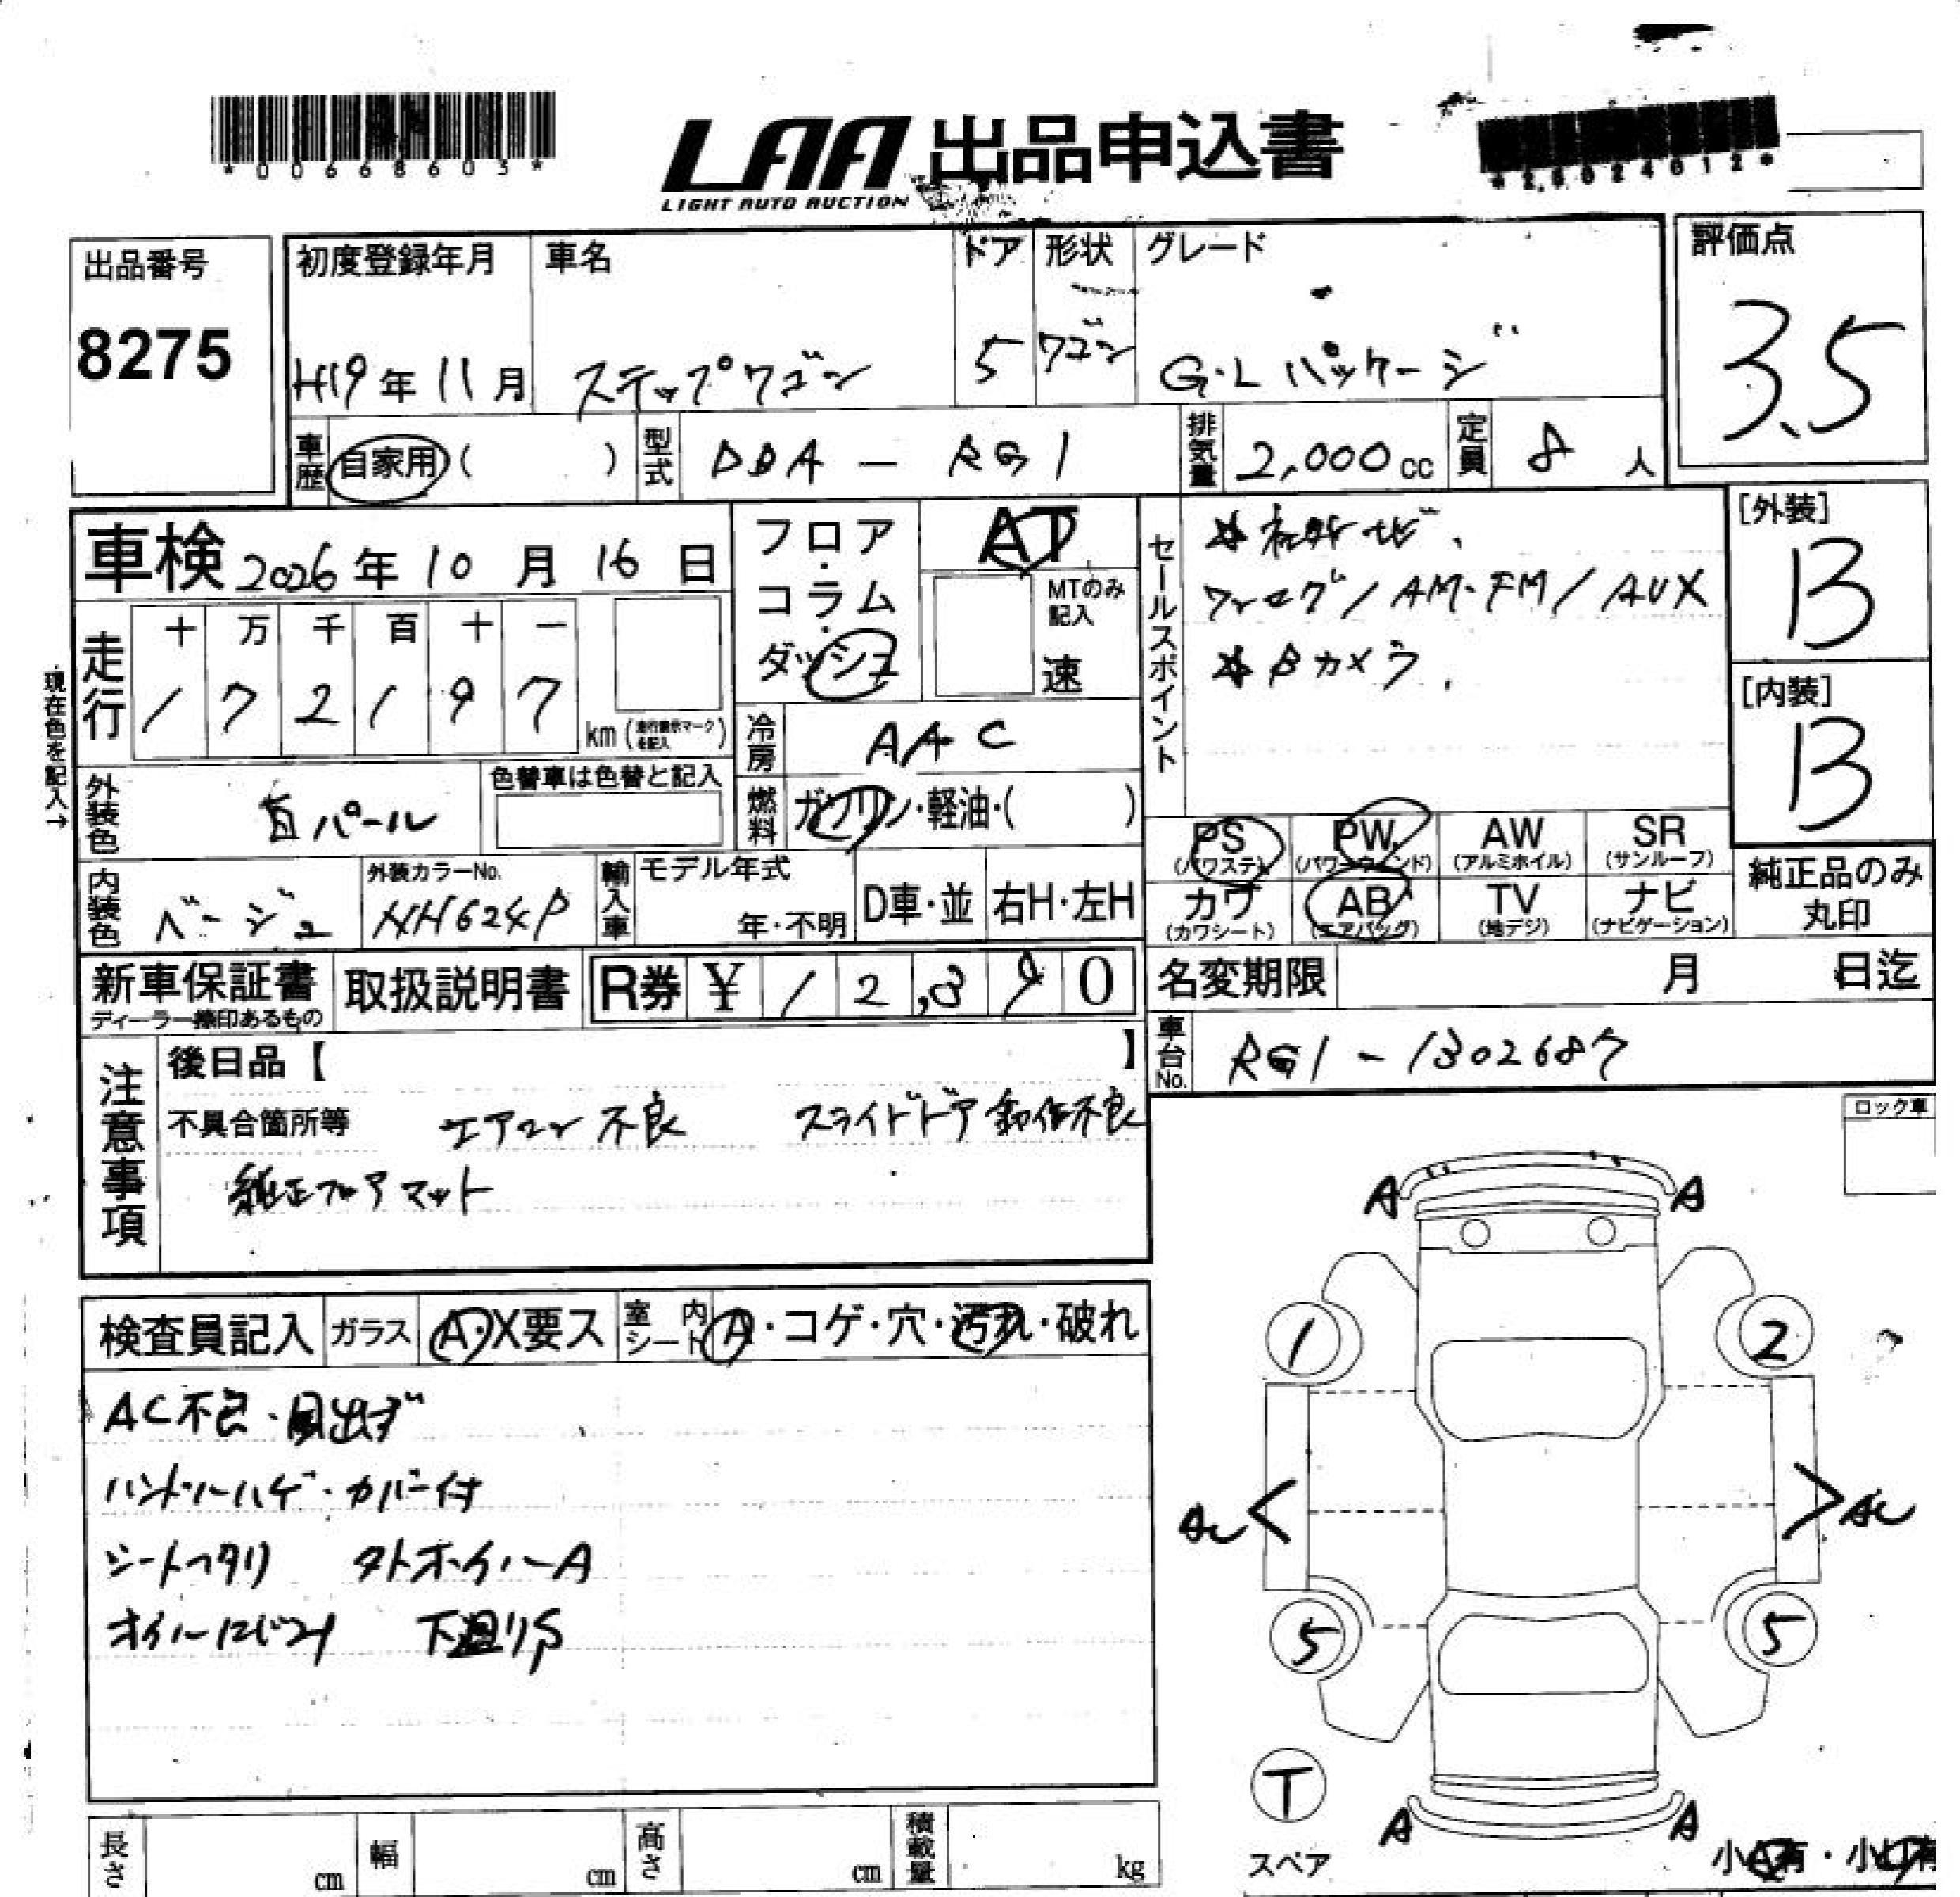 *00668603*
LAA 出品申込書
LIGHT AUTO AUCTION
*26024012*
出品番号
8275
初度登録年月
H19年11月
車名
ステップワゴン
ドア
5
形状
ワゴン
グレード
G・Lパッケージ
評価点
3.5
車歴
自家用( )
型式
DBA-RG1
排気量
2,000cc
定員
8人
車検 2026年10月16日
フロア・コラム・ダッシュ
AT
MTのみ記入
速
セールスポイント
☆社外ナビ、
ワンセグ/AM・FM/AUX
☆Bカメラ.
[外装]
B
[内装]
B
現在色を記入→
走行
十 万 千 百 十 一
1 7 2 1 9 7
km(走行表示マークを記入)
冷房
AAC
燃料
ガソリン・軽油・( )
外装色
白パール
色替車は色替と記入
内装色
ベージュ
外装カラーNo.
NH624P
輸入車
モデル年式
年・不明
D車・並
右H・左H
PS(パワステ)
PW(パワーウィンド)
AW(アルミホイル)
SR(サンルーフ)
カワ(カワシート)
AB(エアバッグ)
TV(地デジ)
ナビ(ナビゲーション)
純正品のみ丸印
新車保証書
ディーラー捺印あるもの
取扱説明書
R券 ¥ 12,390
名変期限 月 日迄
車台No.
RG1-1302687
注意事項
後日品【 】
不具合箇所等 エアコン不良 スライドドア動作不良
純正フロアマット
ロック車
検査員記入
ガラス
A・X要ス
室内シート
A・コゲ・穴・汚れ・破れ
AC不良・風出ず
ハンドルハゲ・カバー付
シートヘタリ
オイルにじみ 下廻りS
A A
1 2
AC AC
5 5
T
スペア
A A
小A有・小U有
長さ cm
幅 cm
高さ cm
積載量 kg